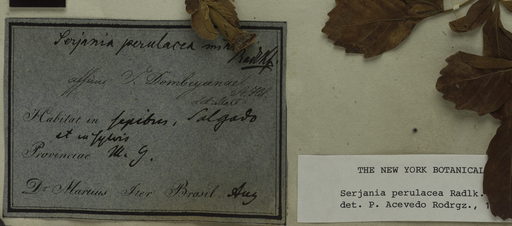 Serjania perulacea
Radlk.
affinis S. Dombeyanae
Habitat in sepibus, Salgado
et in sylvis
Provinciae M. G.
Dr Martius Iter Brasil. Aug
THE NEW YORK BOTANICAL
Serjania perulacea Radlk.
det. P. Acevedo Rodrgz., 1